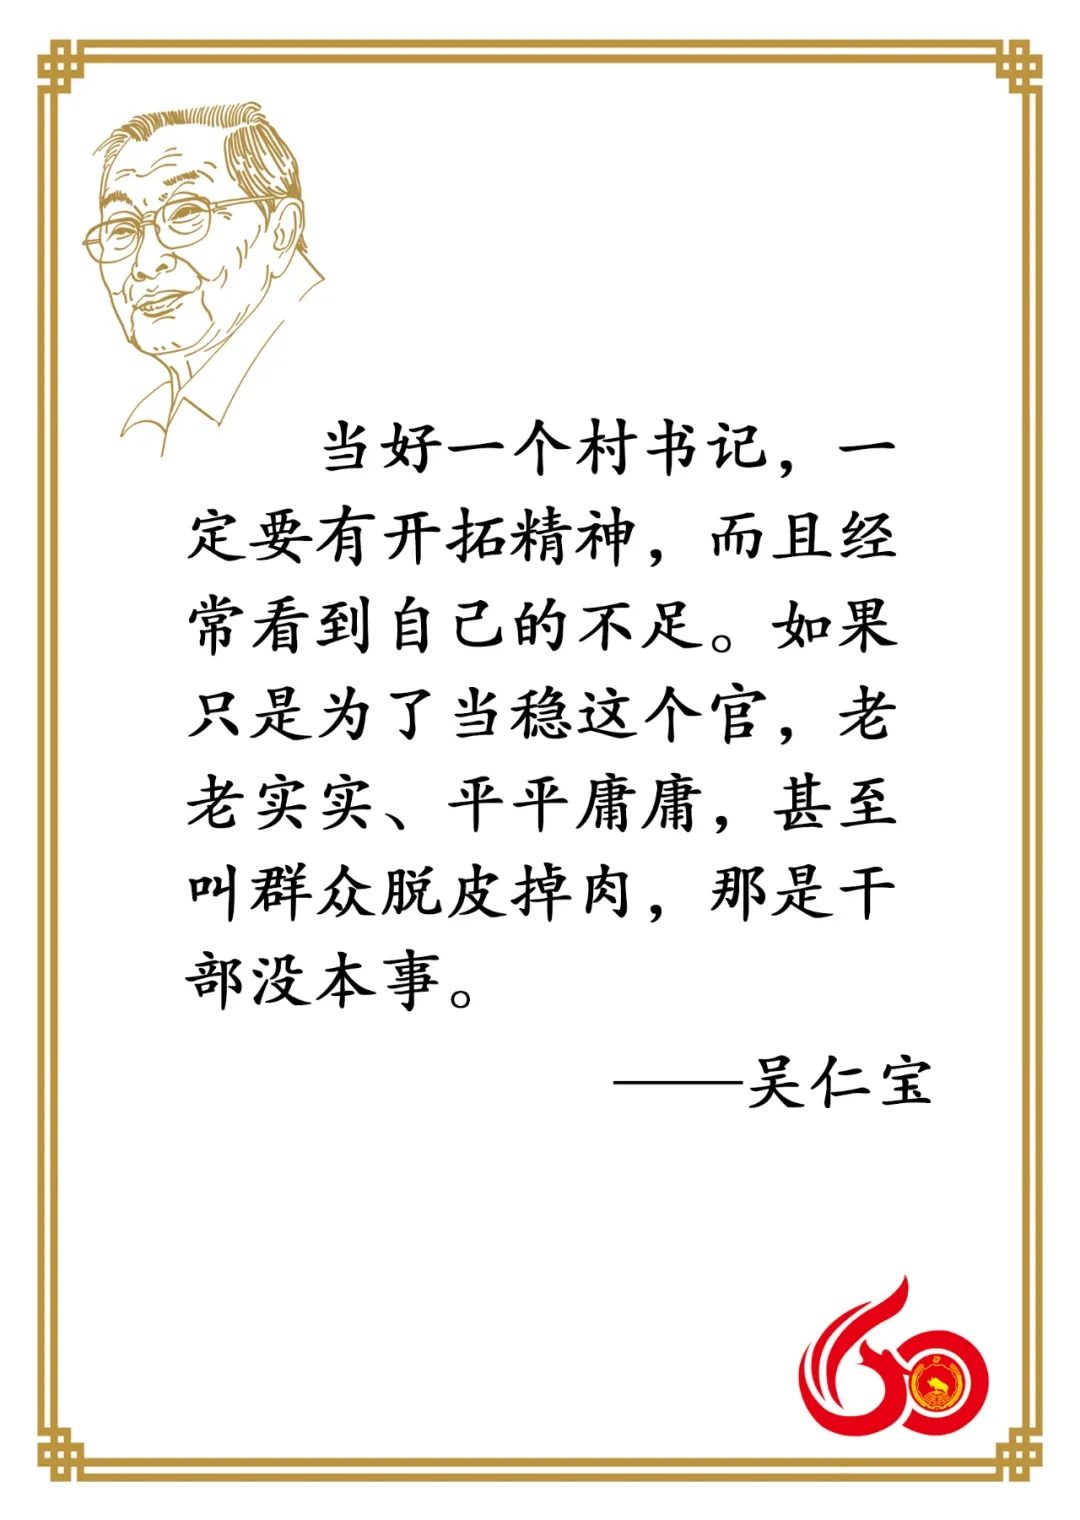 当好一个村书记，一
定要有开拓精神，而且经
常看到自己的不足。如果
只是为了当稳这个官，老
老实实、平平庸庸，甚至
叫群众脱皮掉肉，那是干
部没本事。
——吴仁宝
60